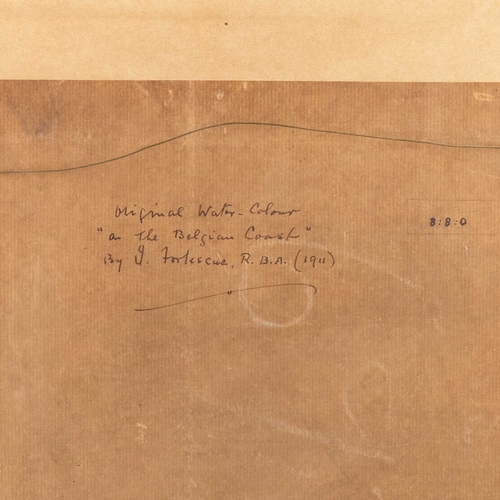 Original Water-Colour
"on The Belgian Coast"
By W. Fortescue, R.B.A. (1911)
8:8:0